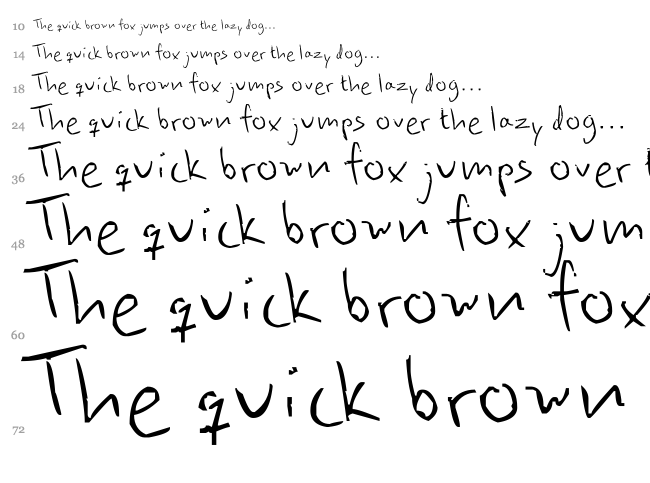 10 The quick brown fox jumps over the lazy dog...
14 The quick brown fox jumps over the lazy dog...
18 The quick brown fox jumps over the lazy dog...
24 The quick brown fox jumps over the lazy dog...
36 The quick brown fox jumps over t
48 The quick brown fox jum
60 The quick brown fox
72 The quick brown